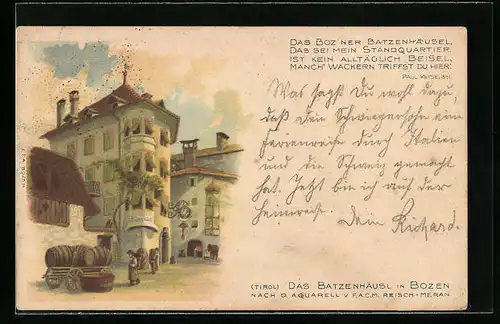 DAS BOZ'NER BATZENHÄUSEL,
DAS SEI MEIN STANDQUARTIER
IST KEIN ALLTÄGLICH BEISEL,
MANCH' WACKERN TRIFFST DU HIER.
PAUL HEYSE, 1881.
Was sagst Du wohl dazu,
daß Dein Schwiegersohn eine
Ferienreise durch Italien
und die Schweiz gemacht
hat. Jetzt bin ich auf der
Heimreise. Dein Richard.
(TIROL) DAS BATZENHÄUSL IN BOZEN
NACH D. AQUARELL V. F.A.C.M. REISCH - MERAN